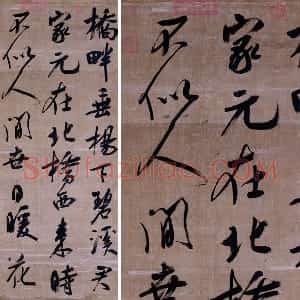 橋畔垂楊下碧溪君
家元在北橋西来時
不似人間世日暖花
家元在北橋
不似人間世